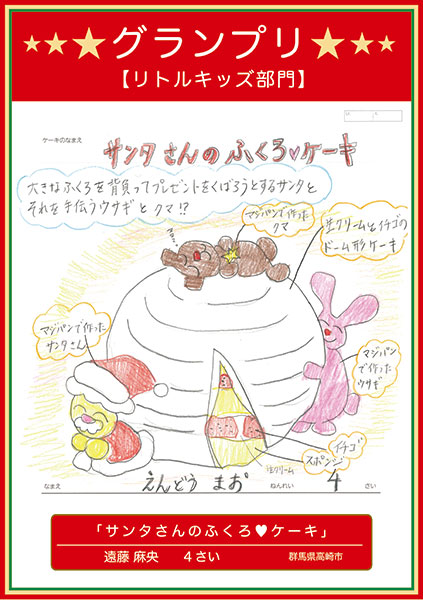 ★★★グランプリ★★★
【リトルキッズ部門】
ケーキのなまえ
サンタさんのふくろ♥ケーキ
大きなふくろを背負ってプレゼントをくばろうとするサンタと
それを手伝うウサギとクマ!?
マジパンで作った
クマ
生クリームとイチゴの
ドーム形ケーキ
マジパンで作った
サンタさん
マジパン
で作った
ウサギ
イチゴ
スポンジ
生クリーム
なまえ えんどう まお ねんれい 4 さい
「サンタさんのふくろ♥ケーキ」
遠藤 麻央 4さい 群馬県高崎市